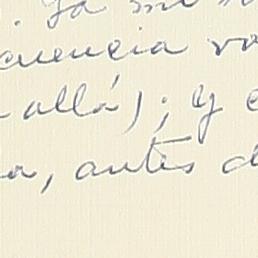 . Ya
cuencia
allá); y
a, antes d